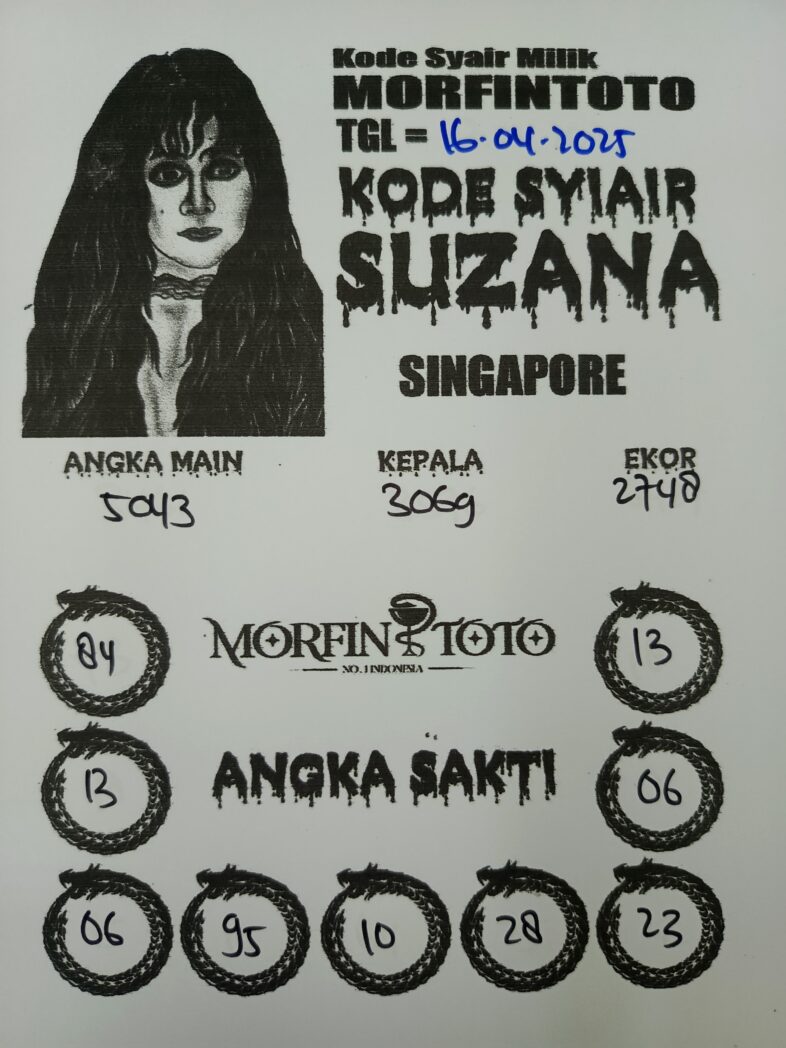 Kode Syair Milik
MORFINTOTO
TGL = 16.04.2025
KODE SYIAIR
SUZANA
SINGAPORE
ANGKA MAIN KEPALA EKOR
5043 3069 2748
84 MORFIN TOTO 13
NO.1 INDONESIA
13 ANGKA SAKTI 06
06 95 10 28 23